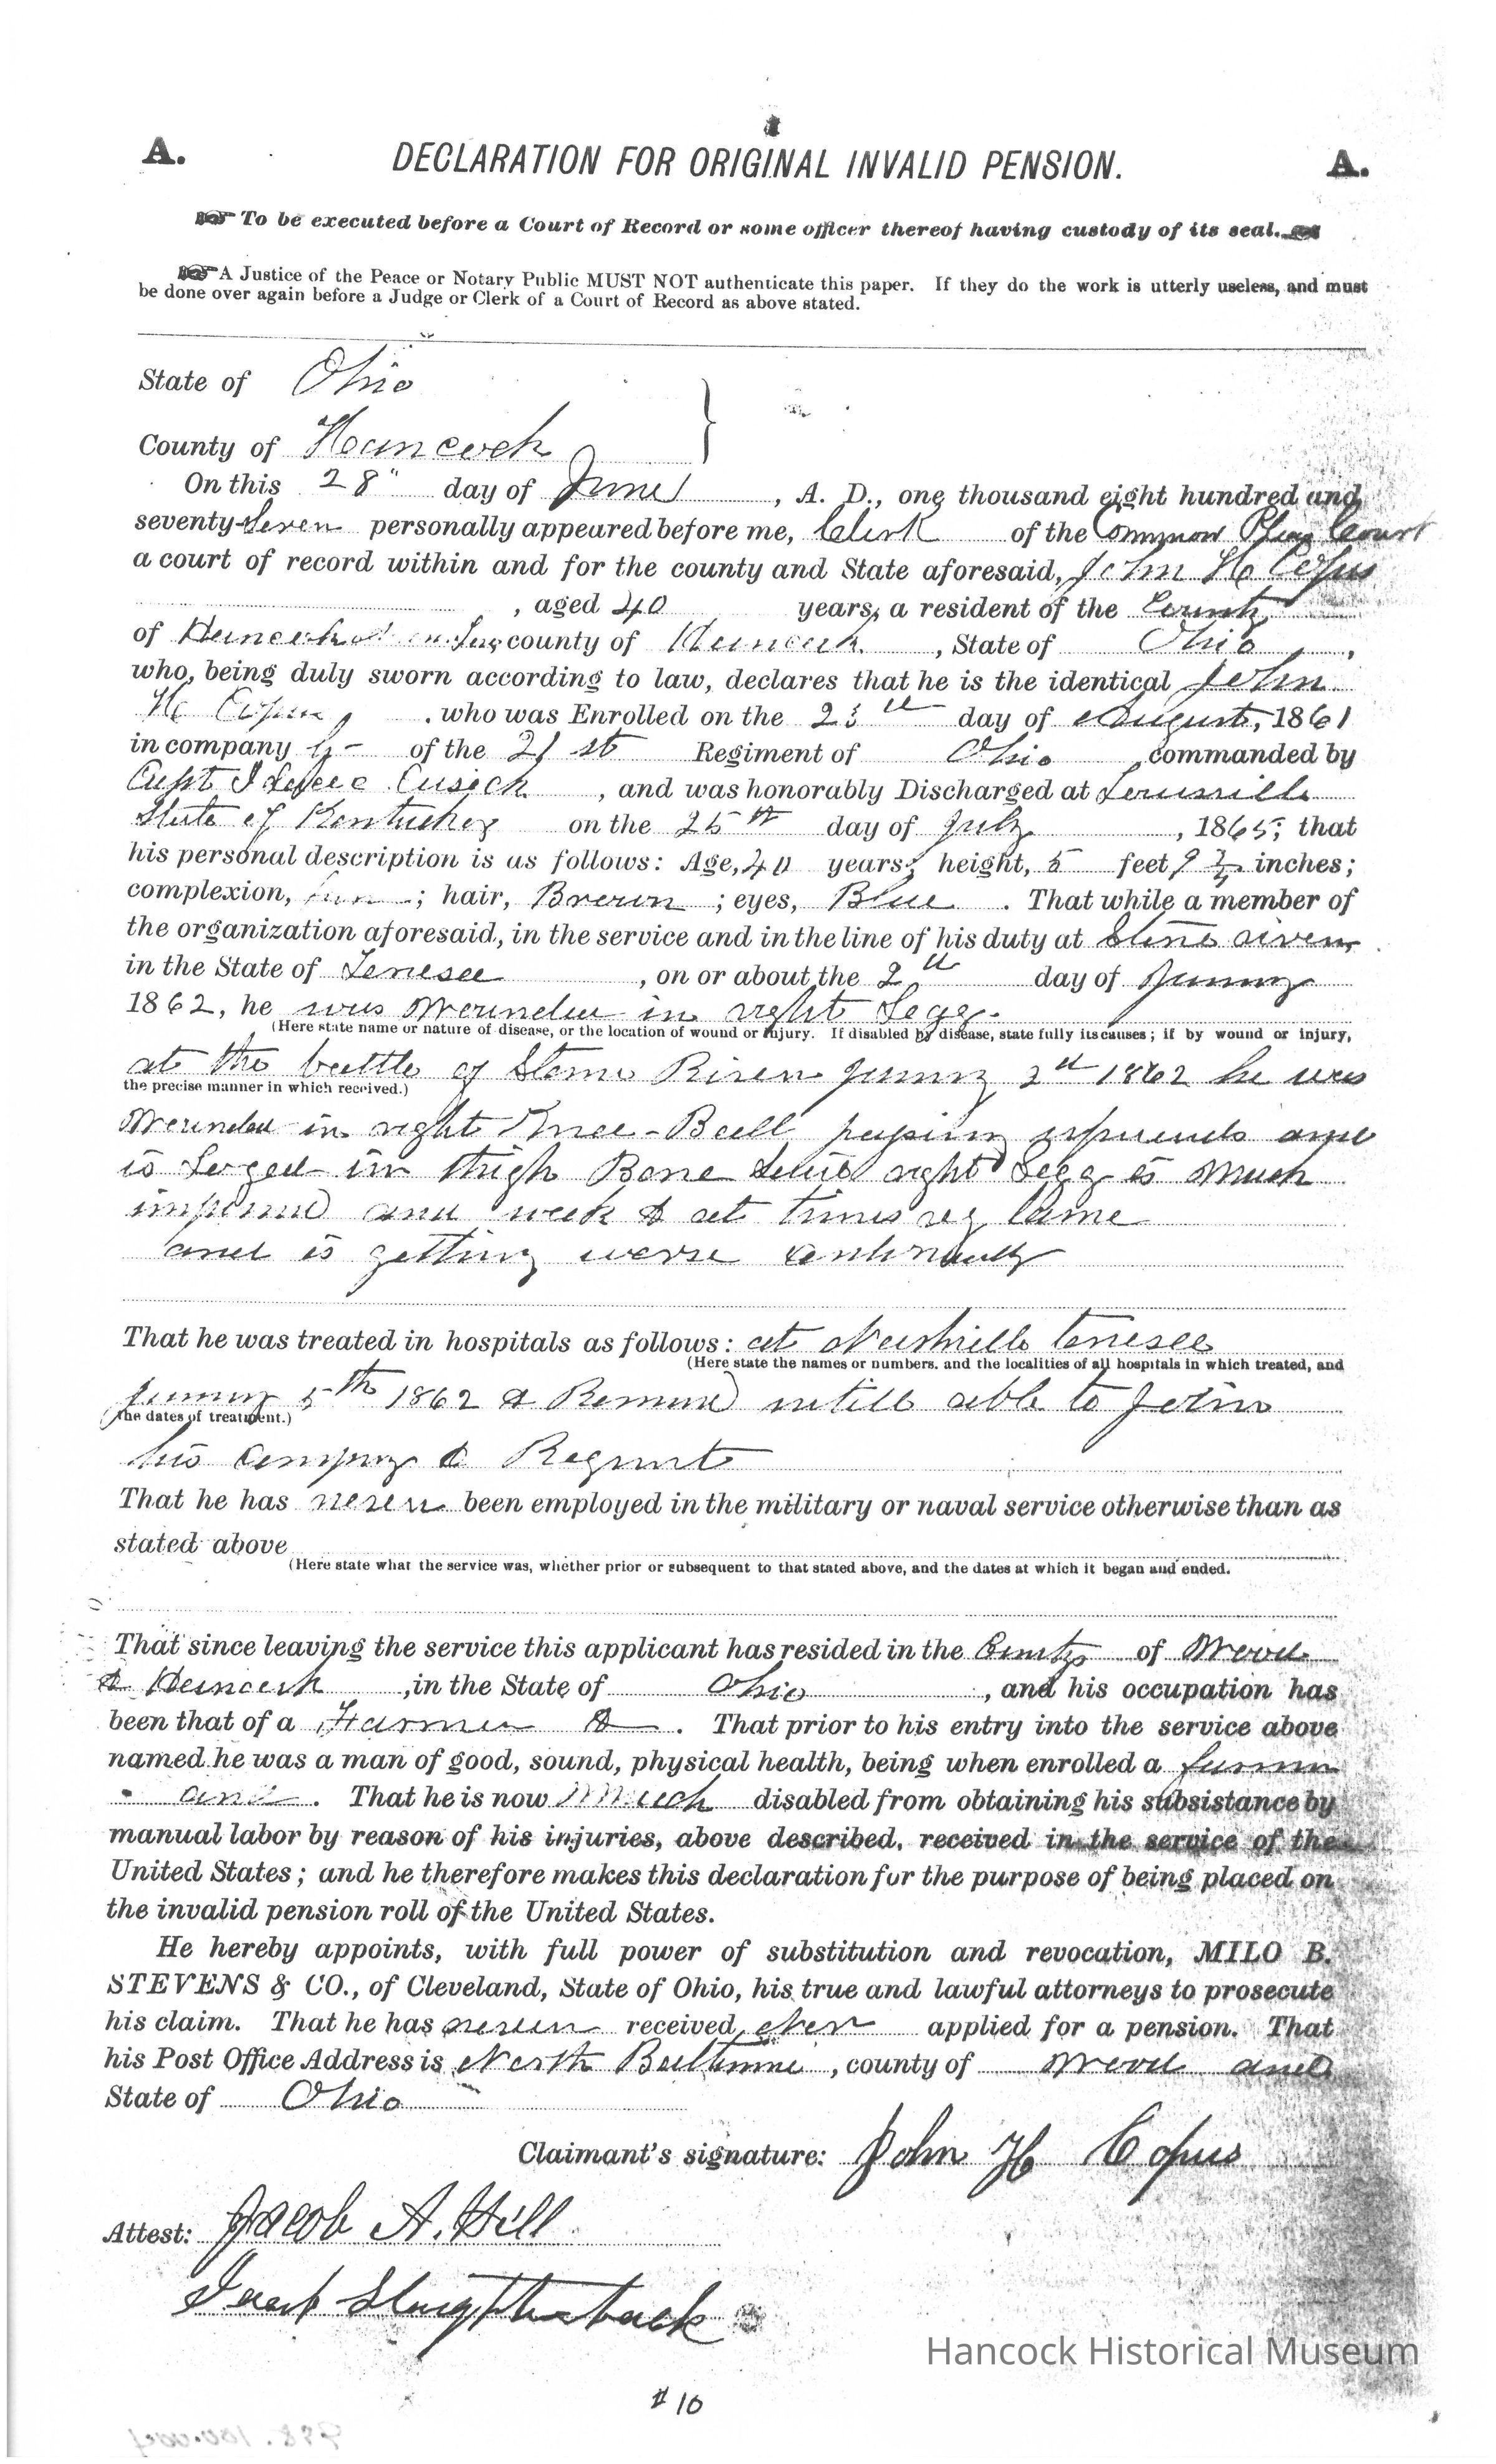 A. DECLARATION FOR ORIGINAL INVALID PENSION. A.
To be executed before a Court of Record or some officer thereof having custody of its seal.
A Justice of the Peace or Notary Public MUST NOT authenticate this paper. If they do the work is utterly useless, and must
be done over again before a Judge or Clerk of a Court of Record as above stated.
State of Ohio
County of Hancock
On this 28" day of June, A. D., one thousand eight hundred and
seventy-seven personally appeared before me, Clerk of the Common Pleas Court
a court of record within and for the county and State aforesaid, John H Copus
, aged 40 years, a resident of the County
of Hancock county of Hancock, State of Ohio,
who, being duly sworn according to law, declares that he is the identical John
H Copus, who was Enrolled on the day of August, 1861
in company G of the 21st Regiment of Ohio commanded by
Capt Isaac Cusick, and was honorably Discharged at Louisville
State of Kentuckey on the 25th day of July, 1865; that
his personal description is as follows: Age, 40 years; height, 5 feet, 9 inches;
complexion, ; hair, Brown; eyes, Blue. That while a member of
the organization aforesaid, in the service and in the line of his duty at Stone river
in the State of Tenesee, on or about the 2 day of January
1862, he was Wounded in right Legg.
(Here state name or nature of disease, or the location of wound or injury. If disabled by disease, state fully its causes; if by wound or injury,
at the battle of Stone River January 2d 1862 he was
the precise manner in which received.)
Wounded in right Knee - Ball passing upwards and
is Loged in thigh Bone right Legg is Much
impaired and weak & at times lame
and is getting worse continually
That he was treated in hospitals as follows: at Nashville Tenesee
(Here state the names or numbers, and the localities of all hospitals in which treated, and
January 5th 1862 & Remained untill able to Join
the dates of treatment.)
his Company & Regiment
That he has never been employed in the military or naval service otherwise than as
stated above
(Here state what the service was, whether prior or subsequent to that stated above, and the dates at which it began and ended.
That since leaving the service this applicant has resided in the County of Wood
& Hancock, in the State of Ohio, and his occupation has
been that of a Farmer. That prior to his entry into the service above
named he was a man of good, sound, physical health, being when enrolled a farmer
and. That he is now Much disabled from obtaining his subsistance by
manual labor by reason of his injuries, above described, received in the service of the
United States; and he therefore makes this declaration for the purpose of being placed on
the invalid pension roll of the United States.
He hereby appoints, with full power of substitution and revocation, MILO B.
STEVENS & CO., of Cleveland, State of Ohio, his true and lawful attorneys to prosecute
his claim. That he has never received, applied for a pension. That
his Post Office Address is North Baltimore, county of Wood and
State of Ohio
Claimant's signature: John H Copus
Attest: Jacob A. Hill
Slaughterback
Hancock Historical Museum
# 10